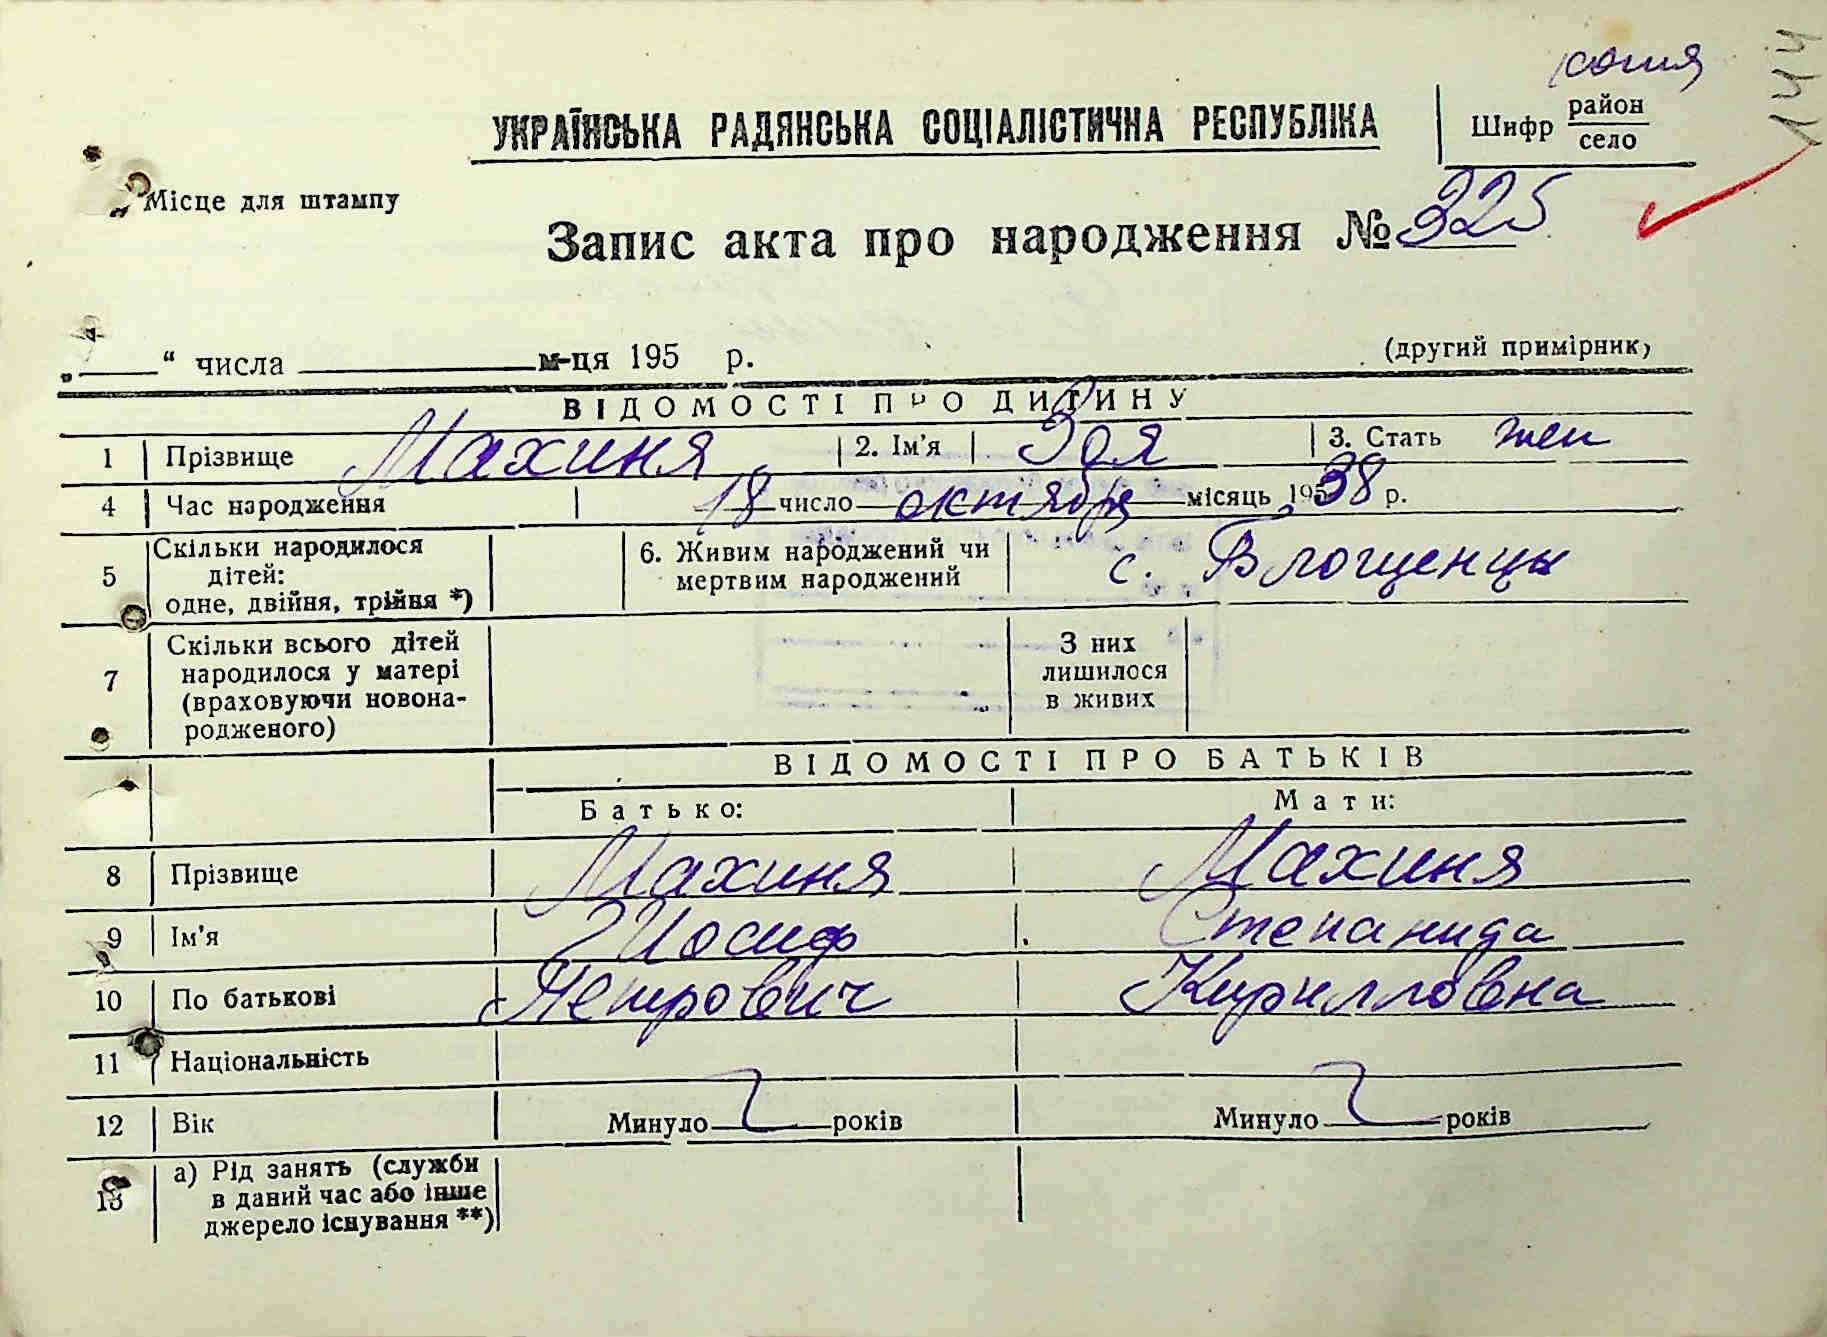 копия
144
УКРАЇНСЬКА РАДЯНСЬКА СОЦІАЛІСТИЧНА РЕСПУБЛІКА
Шифр район
село
Місце для штампу
Запис акта про народження № 325
„ “ числа м-ця 195 р. (другий примірник)
ВІДОМОСТІ ПРО ДИТИНУ
1 Прізвище Махиня 2. Ім'я Зоя 3. Стать жен
4 Час народження 18 число октября місяць 1938 р.
5 Скільки народилося дітей: одне, двійня, трійня *) 6. Живим народжений чи мертвим народжений с. Блощенцы
7 Скільки всього дітей народилося у матері (враховуючи новонародженого) З них лишилося в живих
ВІДОМОСТІ ПРО БАТЬКІВ
Батько: Мати:
8 Прізвище Махиня Махиня
9 Ім'я Иосиф Степанида
10 По батькові Петрович Кирилловна
11 Національність
12 Вік Минуло років Минуло років
13 а) Рід занять (служби в даний час або інше джерело існування **)